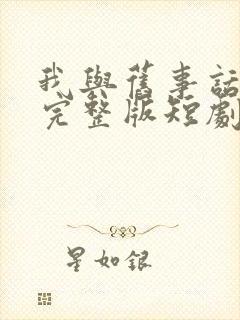 我與舊事話
完整版短劇
星如銀